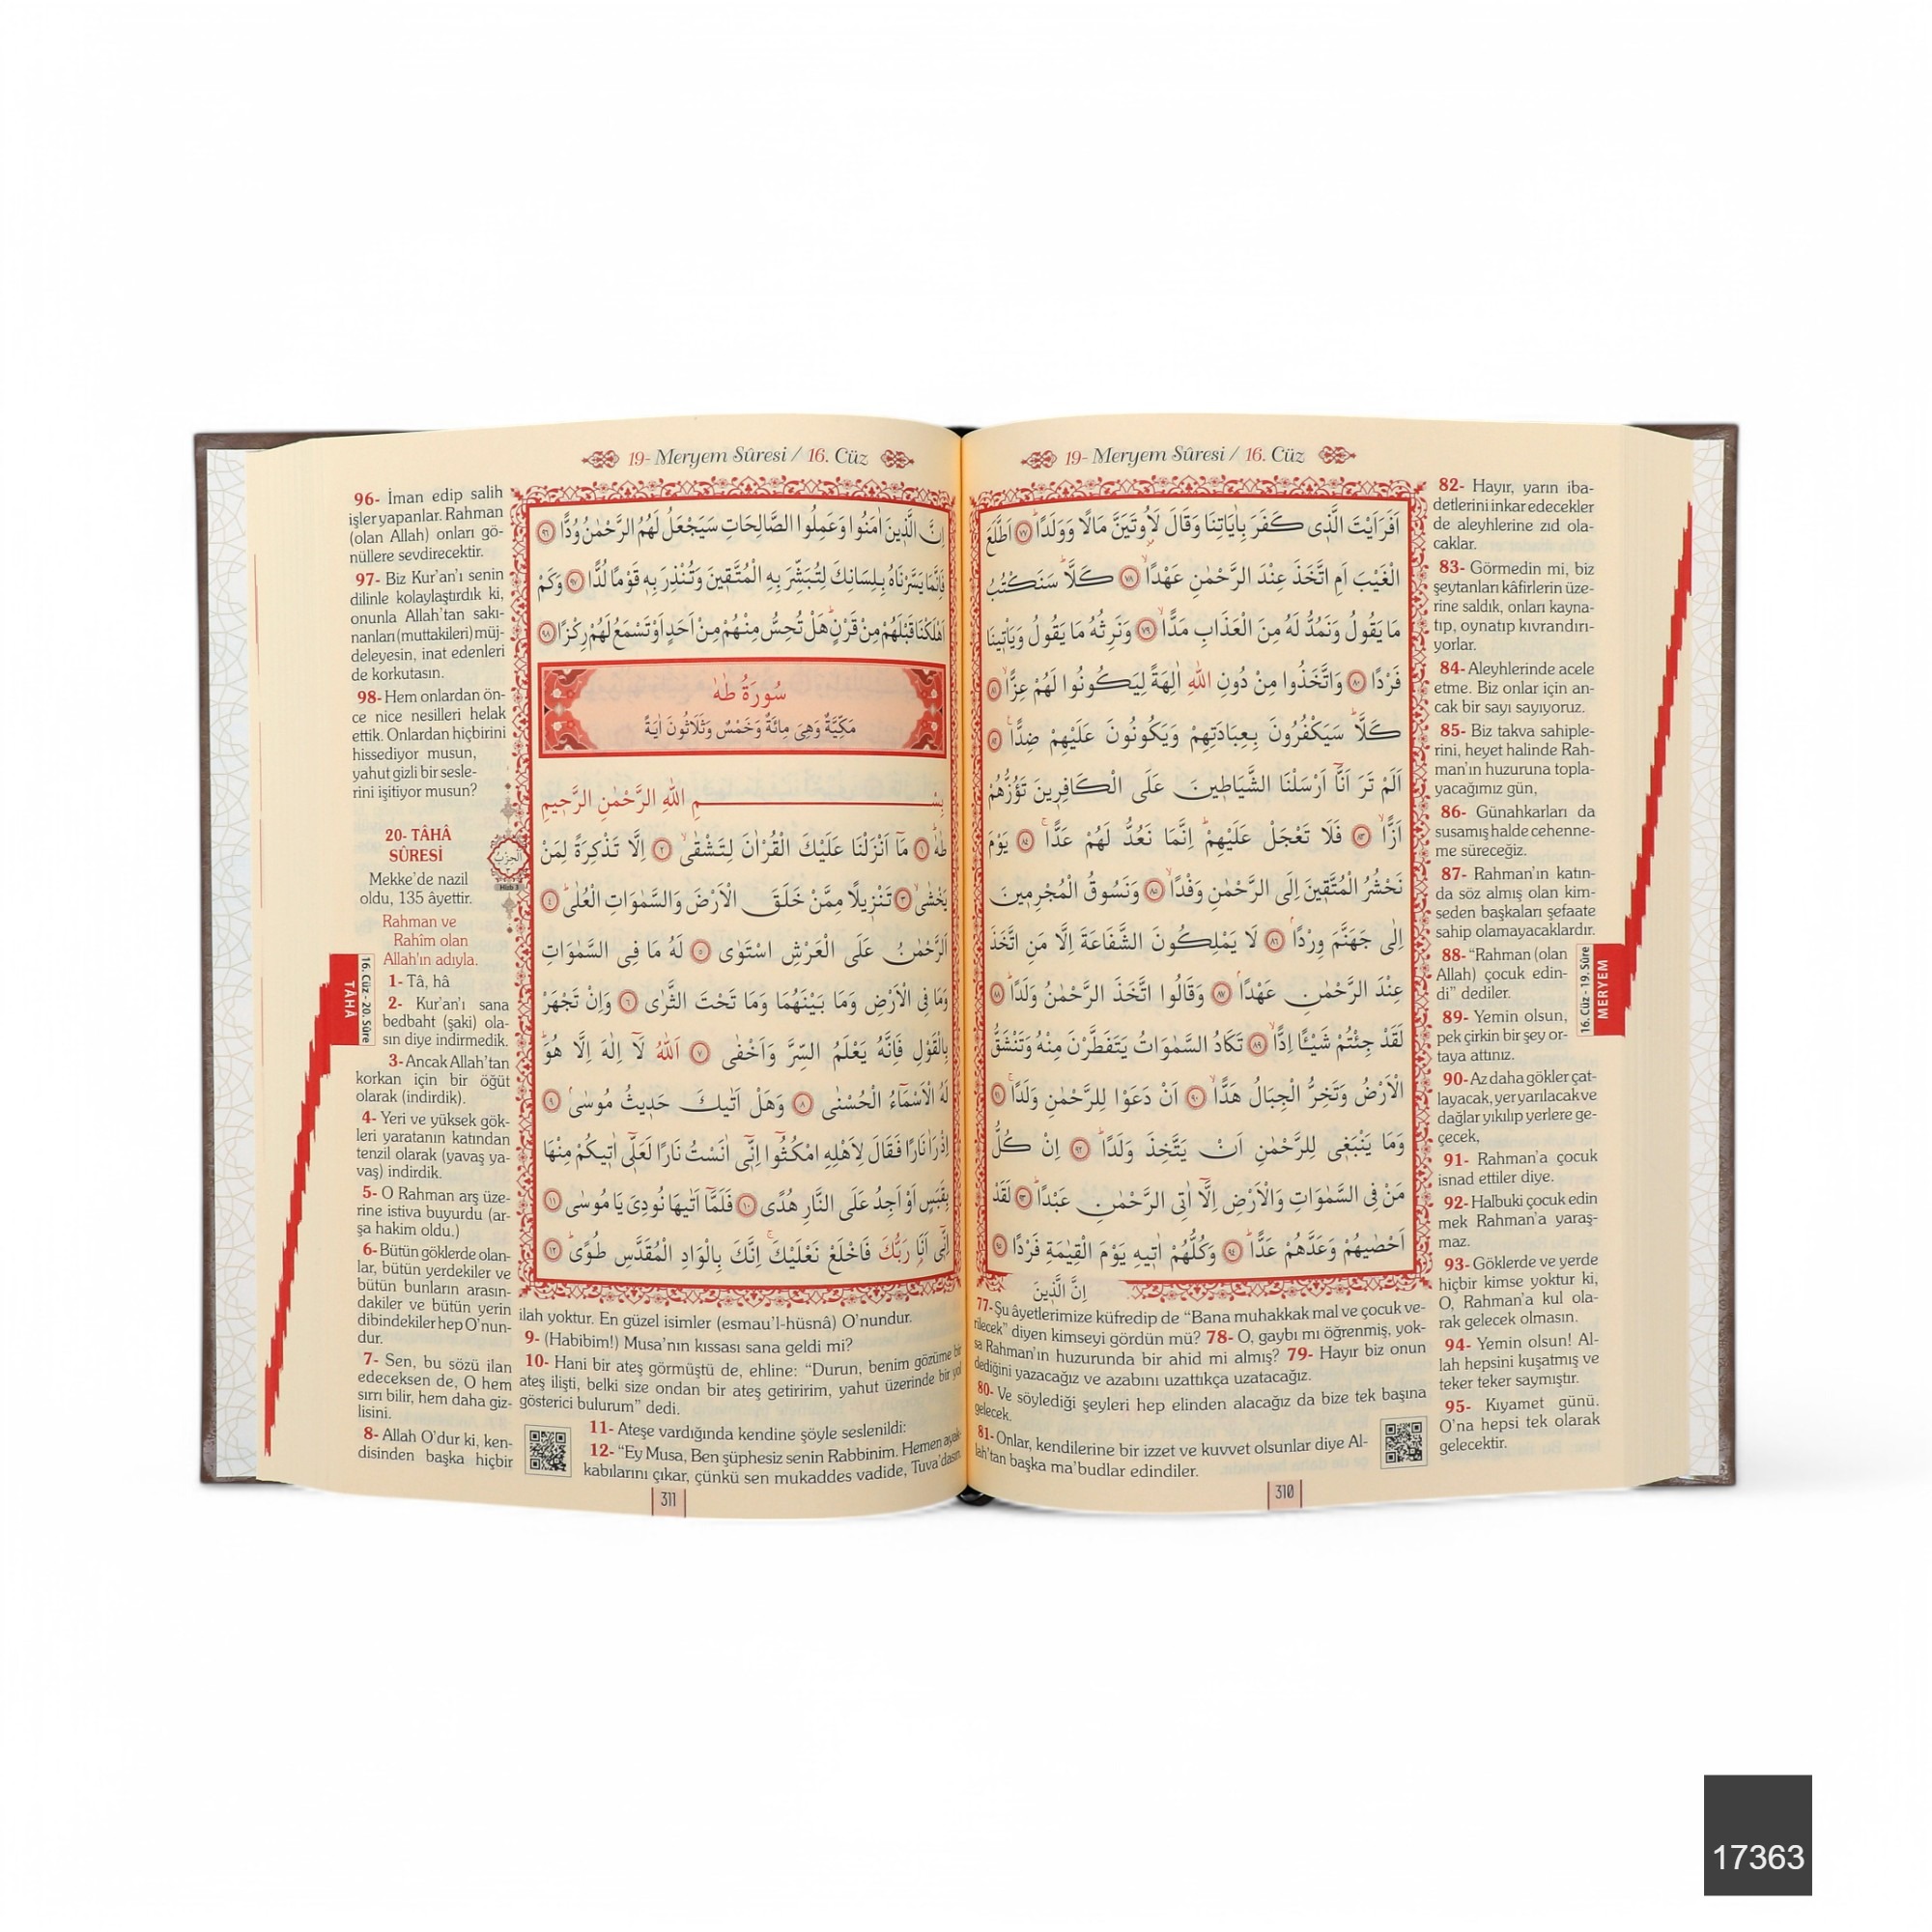 19- Meryem Sûresi / 16. Cüz
اَفَرَاَيْتَ الَّذ۪ي كَفَرَ بِاٰيَاتِنَا وَقَالَ لَاُو۫تَيَنَّ مَالًا وَوَلَدًاۜ ﴿٧٧﴾ اَطَّلَعَ
الْغَيْبَ اَمِ اتَّخَذَ عِنْدَ الرَّحْمٰنِ عَهْدًاۙ ﴿٧٨﴾ كَلَّاۜ سَنَكْتُبُ
مَا يَقُولُ وَنَمُدُّ لَهُ مِنَ الْعَذَابِ مَدًّاۙ ﴿٧٩﴾ وَنَرِثُهُ مَا يَقُولُ وَيَأْت۪ينَا
فَرْدًا ﴿٨٠﴾ وَاتَّخَذُوا مِنْ دُونِ اللّٰهِ اٰلِهَةً لِيَكُونُوا لَهُمْ عِزًّاۙ ﴿٨١﴾
كَلَّاۜ سَيَكْفُرُونَ بِعِبَادَتِهِمْ وَيَكُونُونَ عَلَيْهِمْ ضِدًّا۟ ﴿٨٢﴾
اَلَمْ تَرَ اَنَّٓا اَرْسَلْنَا الشَّيَاط۪ينَ عَلَى الْكَافِر۪ينَ تَؤُزُّهُمْ
اَزًّاۙ ﴿٨٣﴾ فَلَا تَعْجَلْ عَلَيْهِمْۜ اِنَّمَا نَعُدُّ لَهُمْ عَدًّاۚ ﴿٨٤﴾ يَوْمَ
نَحْشُرُ الْمُتَّق۪ينَ اِلَى الرَّحْمٰنِ وَفْدًاۙ ﴿٨٥﴾ وَنَسُوقُ الْمُجْرِم۪ينَ
اِلٰى جَهَنَّمَ وِرْدًاۢ ﴿٨٦﴾ لَا يَمْلِكُونَ الشَّفَاعَةَ اِلَّا مَنِ اتَّخَذَ
عِنْدَ الرَّحْمٰنِ عَهْدًاۢ ﴿٨٧﴾ وَقَالُوا اتَّخَذَ الرَّحْمٰنُ وَلَدًاۜ ﴿٨٨﴾
لَقَدْ جِئْتُمْ شَيْـًٔا اِدًّاۙ ﴿٨٩﴾ تَكَادُ السَّمٰوَاتُ يَتَفَطَّرْنَ مِنْهُ وَتَنْشَقُّ
الْاَرْضُ وَتَخِرُّ الْجِبَالُ هَدًّاۙ ﴿٩٠﴾ اَنْ دَعَوْا لِلرَّحْمٰنِ وَلَدًاۚ ﴿٩١﴾
وَمَا يَنْبَغ۪ي لِلرَّحْمٰنِ اَنْ يَتَّخِذَ وَلَدًاۜ ﴿٩٢﴾ اِنْ كُلُّ
مَنْ فِي السَّمٰوَاتِ وَالْاَرْضِ اِلَّٓا اٰتِي الرَّحْمٰنِ عَبْدًاۜ ﴿٩٣﴾ لَقَدْ
اَحْصٰيهُمْ وَعَدَّهُمْ عَدًّاۜ ﴿٩٤﴾ وَكُلُّهُمْ اٰت۪يهِ يَوْمَ الْقِيٰمَةِ فَرْدًا ﴿٩٥﴾
اِنَّ الَّذ۪ينَ
77- Şu âyetlerimize küfredip de “Bana muhakkak mal ve çocuk ve-
rilecek” diyen kimseyi gördün mü? 78- O, gaybı mı öğrenmiş, yok-
sa Rahman'ın huzurunda bir ahid mi almış? 79- Hayır biz onun
dediğini yazacağız ve azabını uzattıkça uzatacağız.
80- Ve söylediği şeyleri hep elinden alacağız da bize tek başına
gelecek.
81- Onlar, kendilerine bir izzet ve kuvvet olsunlar diye Al-
lah'tan başka ma'budlar edindiler.
82- Hayır, yarın iba-
detlerini inkar edecekler
de aleyhlerine zıd ola-
caklar.
83- Görmedin mi, biz
şeytanları kâfirlerin üze-
rine saldık, onları kayna-
tıp, oynatıp kıvrandırı-
yorlar.
84- Aleyhlerinde acele
etme. Biz onlar için an-
cak bir sayı sayıyoruz.
85- Biz takva sahiple-
rini, heyet halinde Rah-
man'ın huzuruna topla-
yacağımız gün,
86- Günahkarları da
susamış halde cehenne-
me süreceğiz.
87- Rahman'ın katın-
da söz almış olan kim-
seden başkaları şefaate
sahip olamayacaklardır.
88- “Rahman (olan
Allah) çocuk edin-
di” dediler.
89- Yemin olsun,
pek çirkin bir şey or-
taya attınız.
90- Az daha gökler çat-
layacak, yer yarılacak ve
dağlar yıkılıp yerlere ge-
çecek,
91- Rahman'a çocuk
isnad ettiler diye.
92- Halbuki çocuk edin
mek Rahman'a yaraş-
maz.
93- Göklerde ve yerde
hiçbir kimse yoktur ki,
O, Rahman'a kul ola-
rak gelecek olmasın.
94- Yemin olsun! Al-
lah hepsini kuşatmış ve
teker teker saymıştır.
95- Kıyamet günü.
O'na hepsi tek olarak
gelecektir.
16. Cüz - 19. Sûre
MERYEM
310
19- Meryem Sûresi / 16. Cüz
اِنَّ الَّذ۪ينَ اٰمَنُوا وَعَمِلُوا الصَّالِحَاتِ سَيَجْعَلُ لَهُمُ الرَّحْمٰنُ وُدًّا ﴿٩٦﴾
فَاِنَّمَا يَسَّرْنَاهُ بِلِسَانِكَ لِتُبَشِّرَ بِهِ الْمُتَّق۪ينَ وَتُنْذِرَ بِه۪ قَوْمًا لُدًّا ﴿٩٧﴾ وَكَمْ
اَهْلَكْنَا قَبْلَهُمْ مِنْ قَرْنٍۜ هَلْ تُحِسُّ مِنْهُمْ مِنْ اَحَدٍ اَوْ تَسْمَعُ لَهُمْ رِكْزًا ﴿٩٨﴾
سُورَةُ طٰهٰ
مَكِّيَّةٌ وَهِيَ مِائَةٌ وَخَمْسٌ وَثَلَاثُونَ اٰيَةً
بِسْمِ اللّٰهِ الرَّحْمٰنِ الرَّح۪يمِ
طٰهٰۜ ﴿١﴾ مَٓا اَنْزَلْنَا عَلَيْكَ الْقُرْاٰنَ لِتَشْقٰىۙ ﴿٢﴾ اِلَّا تَذْكِرَةً لِمَنْ
يَخْشٰىۙ ﴿٣﴾ تَنْز۪يلًا مِمَّنْ خَلَقَ الْاَرْضَ وَالسَّمٰوَاتِ الْعُلٰىۜ ﴿٤﴾
اَلرَّحْمٰنُ عَلَى الْعَرْشِ اسْتَوٰى ﴿٥﴾ لَهُ مَا فِي السَّمٰوَاتِ
وَمَا فِي الْاَرْضِ وَمَا بَيْنَهُمَا وَمَا تَحْتَ الثَّرٰى ﴿٦﴾ وَاِنْ تَجْهَرْ
بِالْقَوْلِ فَاِنَّهُ يَعْلَمُ السِّرَّ وَاَخْفٰى ﴿٧﴾ اَللّٰهُ لَٓا اِلٰهَ اِلَّا هُوَۜ
لَهُ الْاَسْمَٓاءُ الْحُسْنٰى ﴿٨﴾ وَهَلْ اَتٰيكَ حَد۪يثُ مُوسٰىۢ ﴿٩﴾
اِذْ رَاٰ نَارًا فَقَالَ لِاَهْلِهِ امْكُثُٓوا اِنّ۪ٓي اٰنَسْتُ نَارًا لَعَلّ۪ٓي اٰت۪يكُمْ مِنْهَا
بِقَبَسٍ اَوْ اَجِدُ عَلَى النَّارِ هُدًى ﴿١٠﴾ فَلَمَّٓا اَتٰيهَا نُودِيَ يَا مُوسٰى ﴿١١﴾
اِنّ۪ٓي اَنَا۬ رَبُّكَ فَاخْلَعْ نَعْلَيْكَۚ اِنَّكَ بِالْوَادِ الْمُقَدَّسِ طُوًىۜ ﴿١٢﴾
96- İman edip salih
işler yapanlar. Rahman
(olan Allah) onları gö-
nüllere sevdirecektir.
97- Biz Kur'an'ı senin
dilinle kolaylaştırdık ki,
onunla Allah'tan sakı-
nanları (muttakileri) müj-
deleyesin, inat edenleri
de korkutasın.
98- Hem onlardan ön-
ce nice nesilleri helak
ettik. Onlardan hiçbirini
hissediyor musun,
yahut gizli bir sesle-
rini işitiyor musun?
20- TÂHÂ
SÛRESİ
Mekke'de nazil
oldu, 135 âyettir.
Rahman ve
Rahîm olan
Allah'ın adıyla.
1- Tâ, hâ
2- Kur'an'ı sana
bedbaht (şaki) ola-
sın diye indirmedik.
3- Ancak Allah'tan
korkan için bir öğüt
olarak (indirdik).
4- Yeri ve yüksek gök-
leri yaratanın katından
tenzil olarak (yavaş ya-
vaş) indirdik.
5- O Rahman arş üze-
rine istiva buyurdu (ar-
şa hakim oldu.)
6- Bütün göklerde olan-
lar, bütün yerdekiler ve
bütün bunların arasın-
dakiler ve bütün yerin
dibindekiler hep O'nun-
dur.
7- Sen, bu sözü ilan
edeceksen de, O hem
sırrı bilir, hem daha giz-
lisini.
8- Allah O'dur ki, ken-
disinden başka hiçbir
ilah yoktur. En güzel isimler (esmau'l-hüsnâ) O'nundur.
9- (Habibim!) Musa'nın kıssası sana geldi mi?
10- Hani bir ateş görmüştü de, ehline: “Durun, benim gözüme bir
ateş ilişti, belki size ondan bir ateş getiririm, yahut üzerinde bir yol
gösterici bulurum” dedi.
11- Ateşe vardığında kendine şöyle seslenildi:
12- “Ey Musa, Ben şüphesiz senin Rabbinim. Hemen ayak-
kabılarını çıkar, çünkü sen mukaddes vadide, Tuva'dasın.
الحزب
Hizb 3
16. Cüz - 20. Sûre
TÂHÂ
311
17363